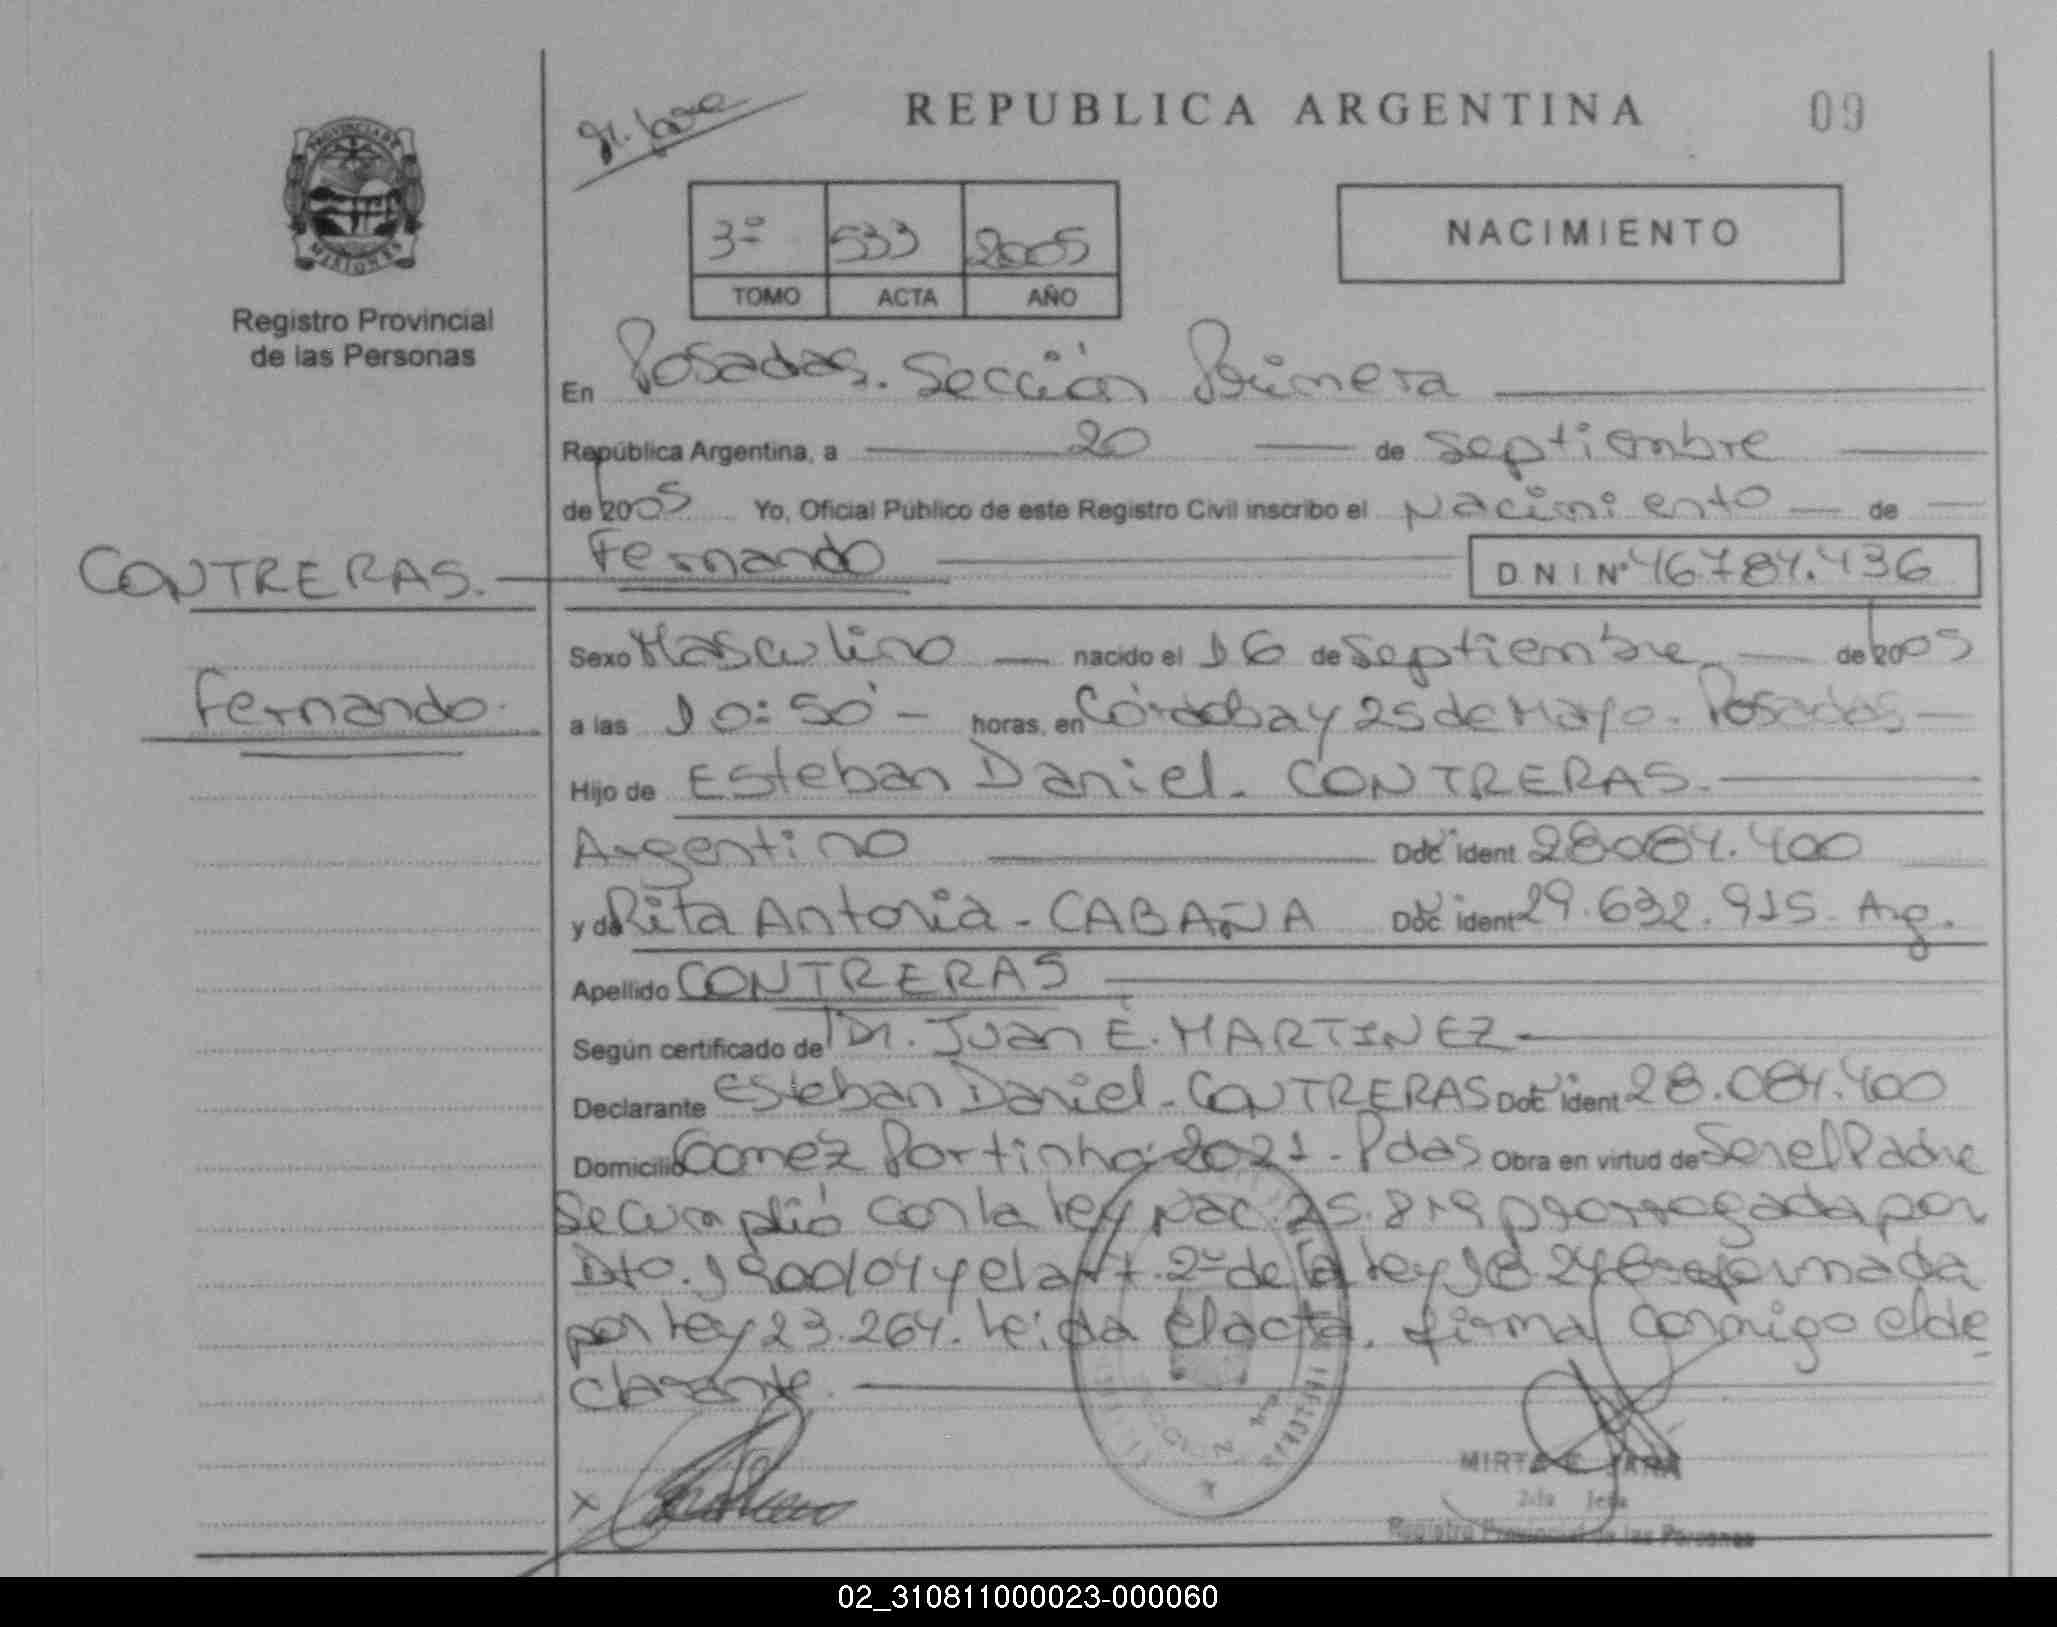 REPUBLICA ARGENTINA 09
PROVINCIA DE
MISIONES
3º 533 2005
TOMO ACTA AÑO
NACIMIENTO
Registro Provincial
de las Personas
En Posadas. Sección Primera
República Argentina, a 20 de Septiembre
de 2005 Yo, Oficial Público de este Registro Civil inscribo el Nacimiento de
CONTRERAS. Fernando DNI Nº 46.784.436
Sexo Masculino nacido el 16 de Septiembre de 2005
Fernando.
a las 10:50 horas, en Córdoba y 25 de Mayo. Posadas
Hijo de Esteban Daniel. CONTRERAS.
Argentino Doc ident 28084.400
y de Rita Antonia - CABAÑA Doc ident 29.632.915. Arg.
Apellido CONTRERAS
Según certificado de Dr. Juan E. MARTINEZ
Declarante Esteban Daniel - CONTRERAS Doc ident 28.084.400
Domicilio Gomez Portinho 2021 - Pdas Obra en virtud de Ser el Padre
Se Cumplió con la Ley Nac. 25.819 prorrogada por
Dto. 1900/04 y el art. 2º de la Ley 18.248 reformada
por Ley 23.264. Leida el acta, firma conmigo el de
clarante.
x
MIRTA
2da Jefa
Registro Provincial de las Personas
02_310811000023-000060